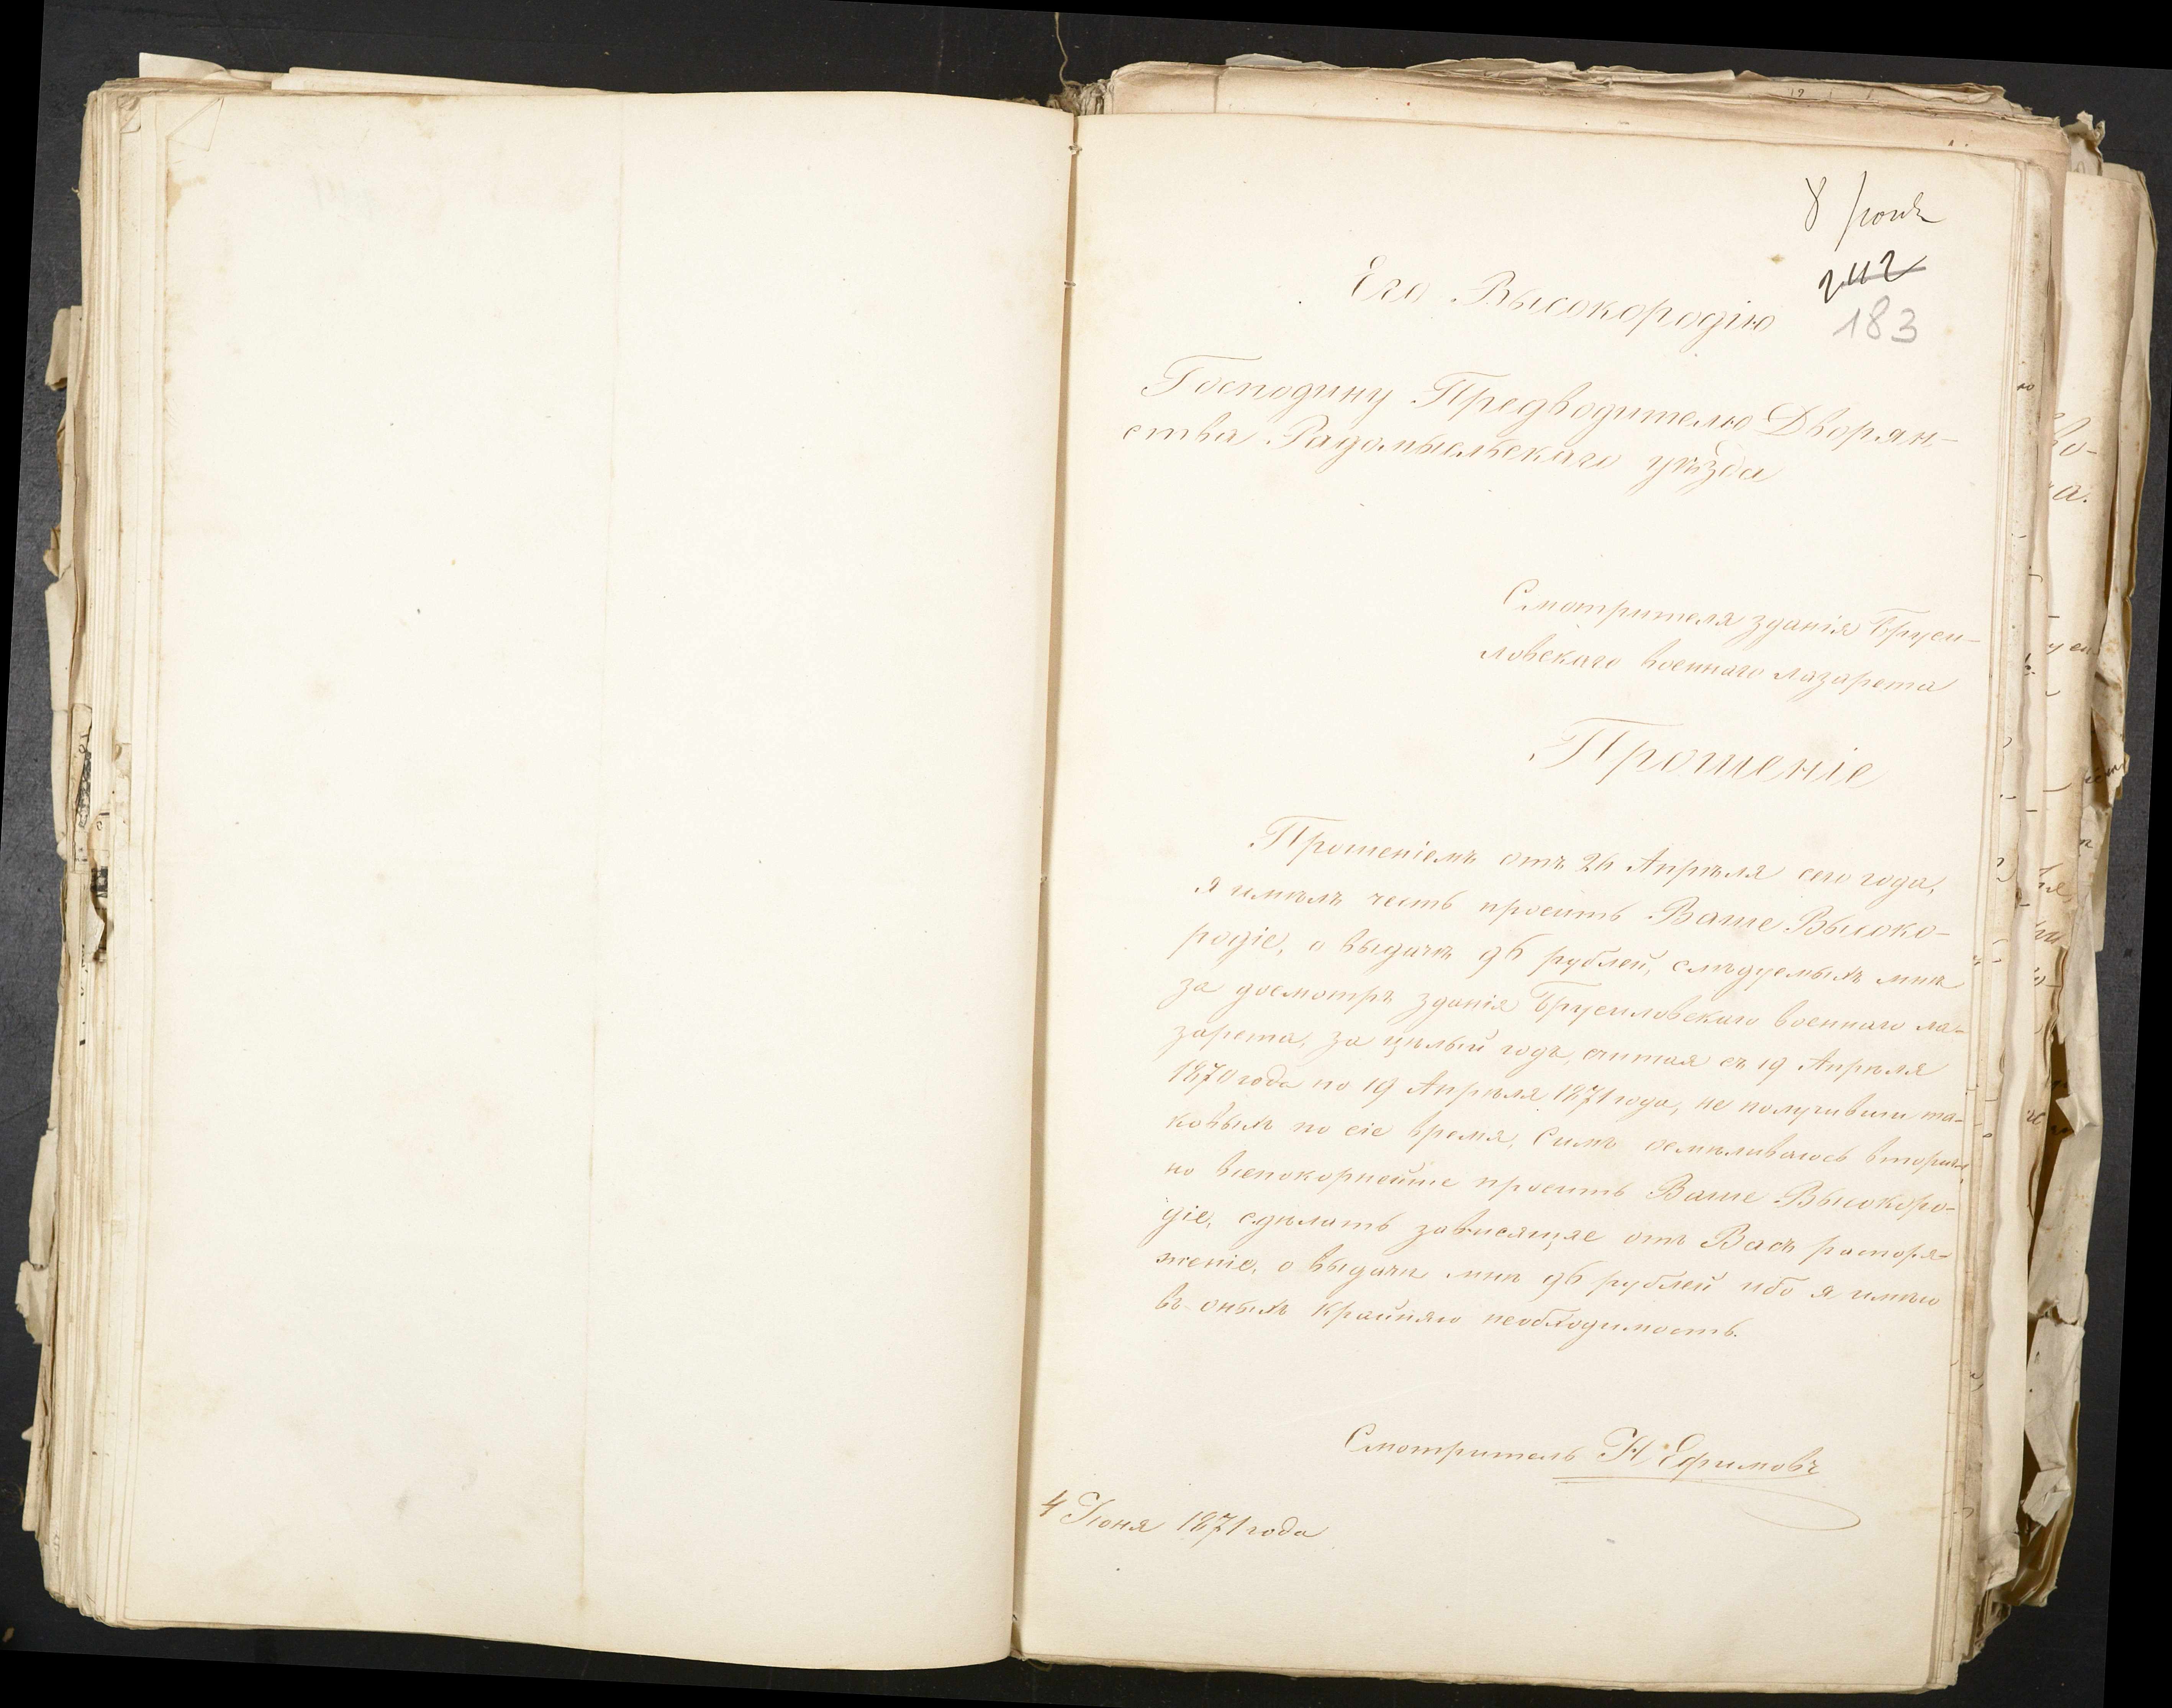 8 Іюня
242
183
Его Высокородію
Господину Предводителю Дворян-
ства Радомысльскаго уѣзда
Смотрителя зданія Бруси-
ловскаго военнаго лазарета
Прошеніе
Прошеніемъ отъ 26 Апрѣля сего года,
я имѣлъ честь просить Ваше Высоко-
родіе, о выдачѣ 96 рублей, слѣдуемыхъ мнѣ
за досмотръ зданія Брусиловскаго военнаго ла-
зарета, за цѣлый годъ, считая съ 19 Апрѣля
1870 года по 19 Апрѣля 1871 года, не получивши та-
ковыхъ по сіе время, Симъ осмѣливаюсь вторич-
но всепокорнейше просить Ваше Высокоро-
діе, сдѣлать зависящее отъ Васъ распоря-
женіе, о выдачи мнѣ 96 рублей ибо я имѣю
въ оныхъ крайнюю необходимость.
Смотритель Н Ефимовъ
4 Іюня 1871 года